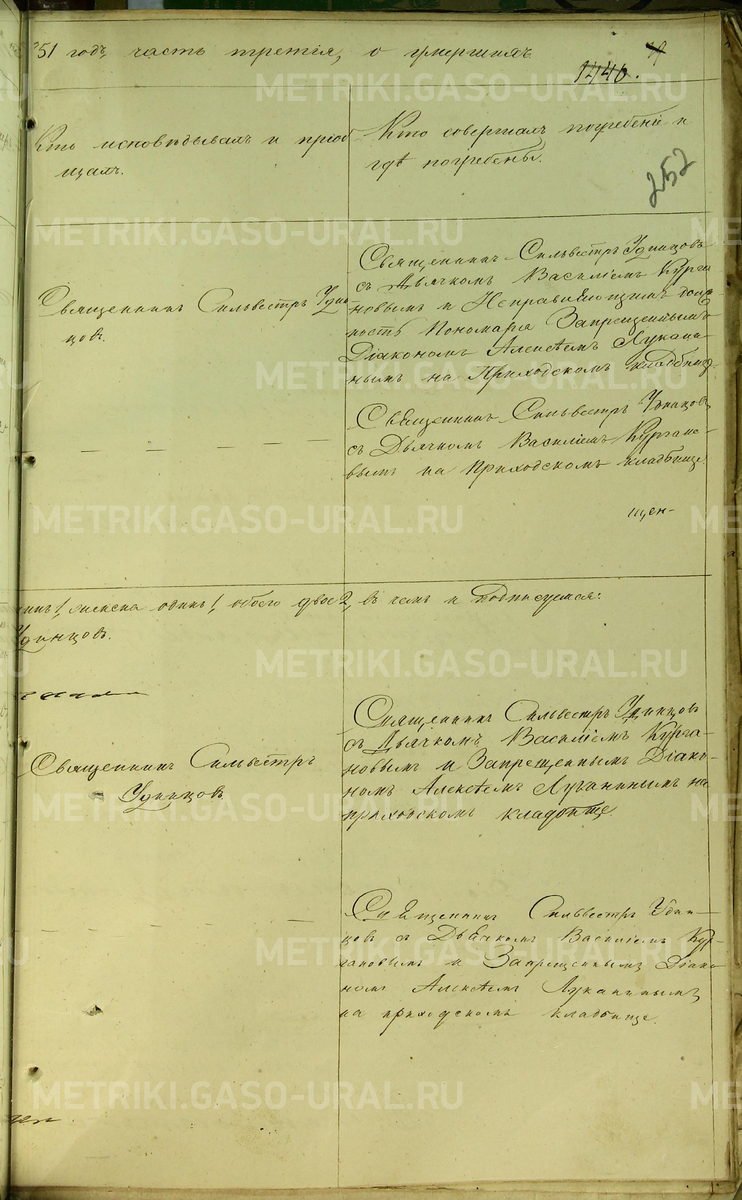 851 годъ, часть третія, о умершихъ
1246. 19
Кто исповѣдывалъ и пріоб
щалъ.
Кто совершалъ погребеніе и
гдѣ погребены.
252
Священникъ Сильвестръ Удин
цовъ.
Священникъ Сильвестръ Удинцовъ
съ Дьячкомъ Василіемъ Курга
новымъ и Исправляющимъ долж
ность Пономаря Запрещеннымъ
Діакономъ Алексѣемъ Лукани
нымъ на Приходскомъ кладбищѣ.
Священникъ Сильвестръ Удинцовъ
съ Дьячкомъ Василіемъ Кургано
вымъ на Приходскомъ кладбище.
щен-
женска одинъ 1, обоего двое 2, въ чемъ и подписуемся:
Удинцовъ.
Священникъ Сильвестръ
Удинцовъ
Священникъ Сильвестръ Удинцовъ
съ Дьячкомъ Василіемъ Курга
новымъ и Запрещеннымъ Діако
номъ Алексѣемъ Луканинымъ на
приходскомъ кладбище.
Священникъ Сильвестръ Удин
цовъ съ Дьячкомъ Василіемъ Кур
гановымъ и Запрещеннымъ Діако
номъ Алексѣемъ Луканинымъ
на приходскомъ кладбище.
METRIKI.GASO-URAL.RU